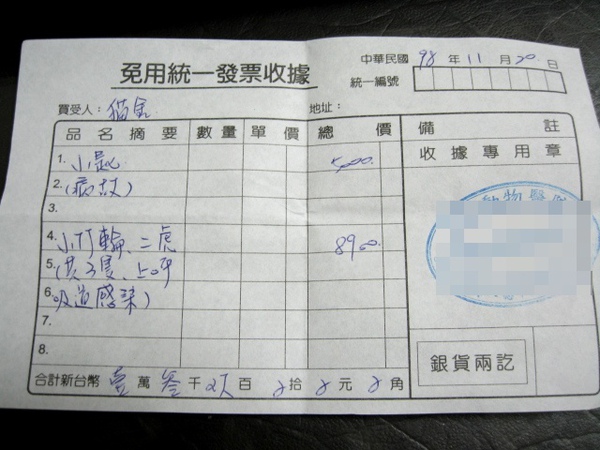 免用統一發票收據
中華民國 98 年 11 月 20 日
統一編號
買受人：猫
地址：
品名摘要 數量 單價 總價 備註
收據專用章
1. 小 5000.
2. (病故)
3.
4. 小灯輪、二虎 8900.
5. (共3隻、上呼
6. 吸道感染)
7.
8.
動物醫
銀貨兩訖
合計新台幣 壹 萬 叁 千 玖 百 拾 元 角